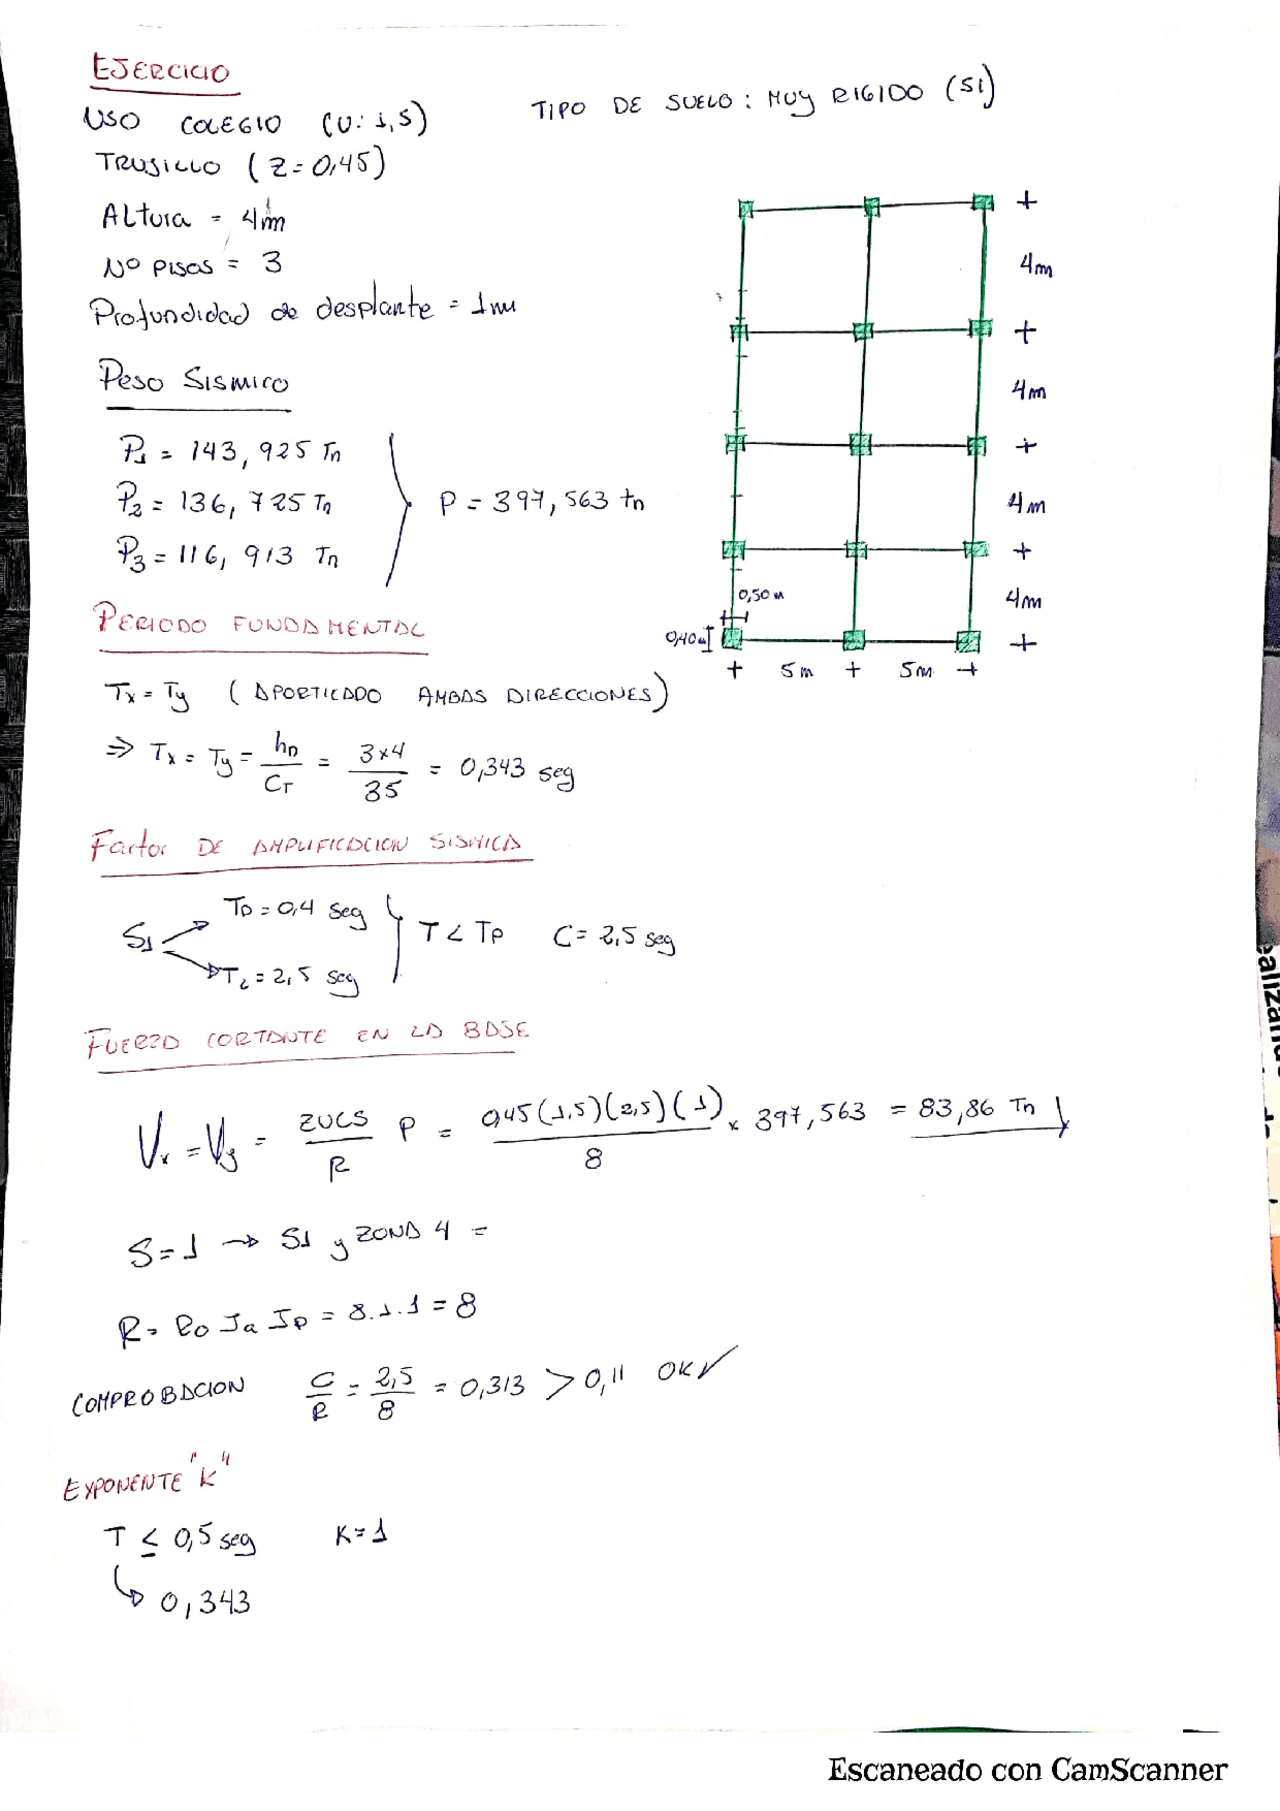 EJERCICIO
USO COLEGIO (U: 1,5)
TIPO DE SUELO: MUY RIGIDO (S1)
TRUJILLO (Z=0,45)
Altura = 4m
Nº PISOS = 3
Profundidad de desplante = 1m
+
4m
+
4m
+
4m
+
4m
+
0,50 m
0,40m
+ 5m + 5m +
PESO SISMICO
P1 = 143,925 Tn
P2 = 136,725 Tn
P3 = 116,913 Tn
P = 397,563 tn
PERIODO FUNDAMENTAL
Tx = Ty (APORTICADO AMBAS DIRECCIONES)
⇒ Tx = Ty = hn/CT = 3x4/35 = 0,343 seg
Factor DE AMPLIFICACION SISMICA
S1
TP = 0,4 seg
TL = 2,5 seg
T < TP C = 2,5 seg
FUERZA CORTANTE EN LA BASE
Vx = Vy = ZUCS/R P = 0,45(1,5)(2,5)(1)/8 x 397,563 = 83,86 Tn
S = 1 → S1 y ZONA 4 =
R = Ro Ia Ip = 8.1.1 = 8
COMPROBACION C/R = 2,5/8 = 0,313 > 0,11 OK ✓
EXPONENTE "K"
T ≤ 0,5 seg K = 1
↳ 0,343
ealizand
Escaneado con CamScanner